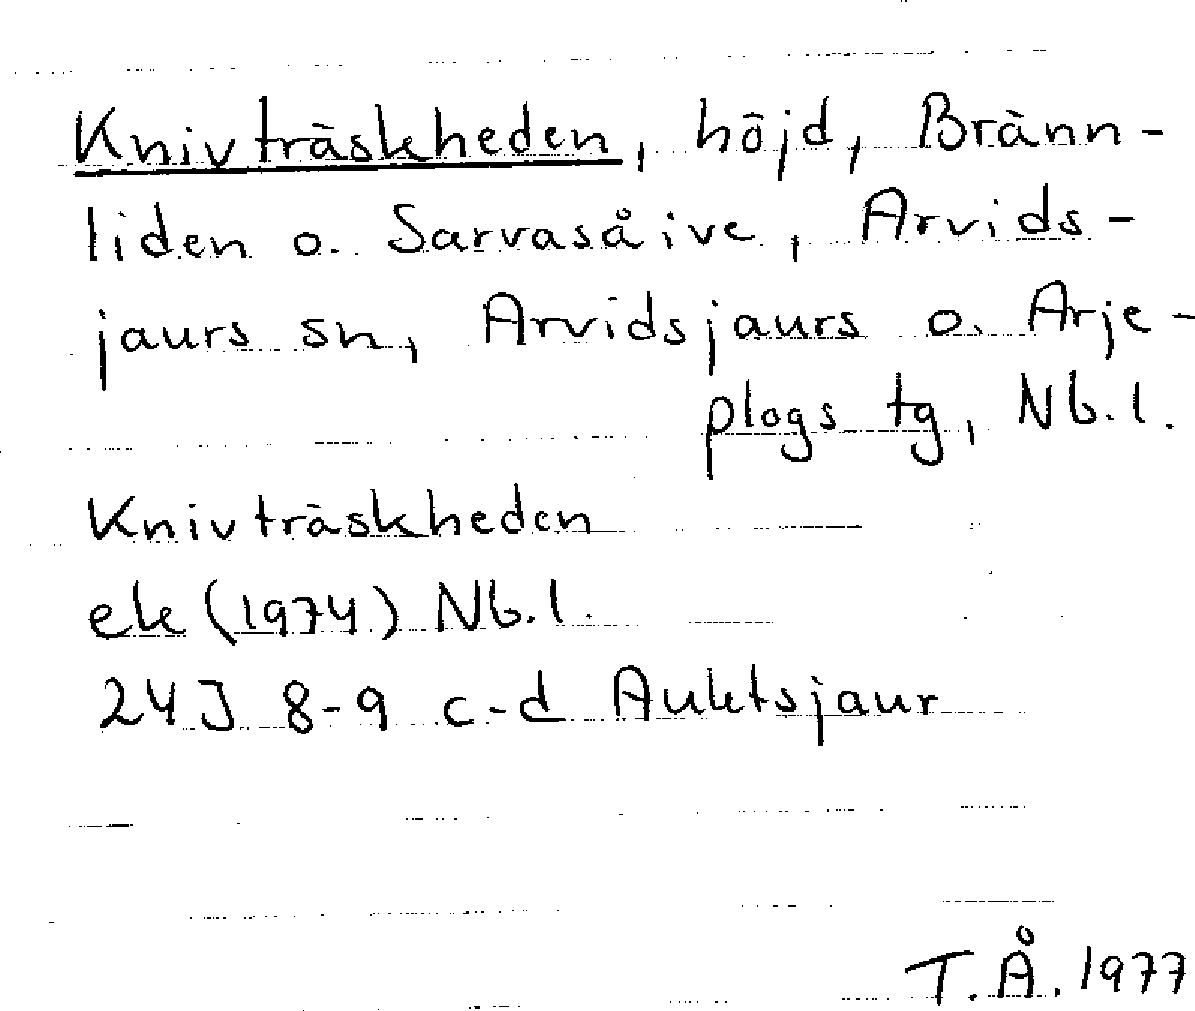 Knivträskheden, höjd, Bränn-
liden o. Sarvasåive, Arvids-
jaurs sn, Arvidsjaurs o. Arje-
plogs tg, Nb.l.
Knivträskheden
ek (1974) Nb.l.
24J 8-9 c-d Auktsjaur
T.Å. 1977